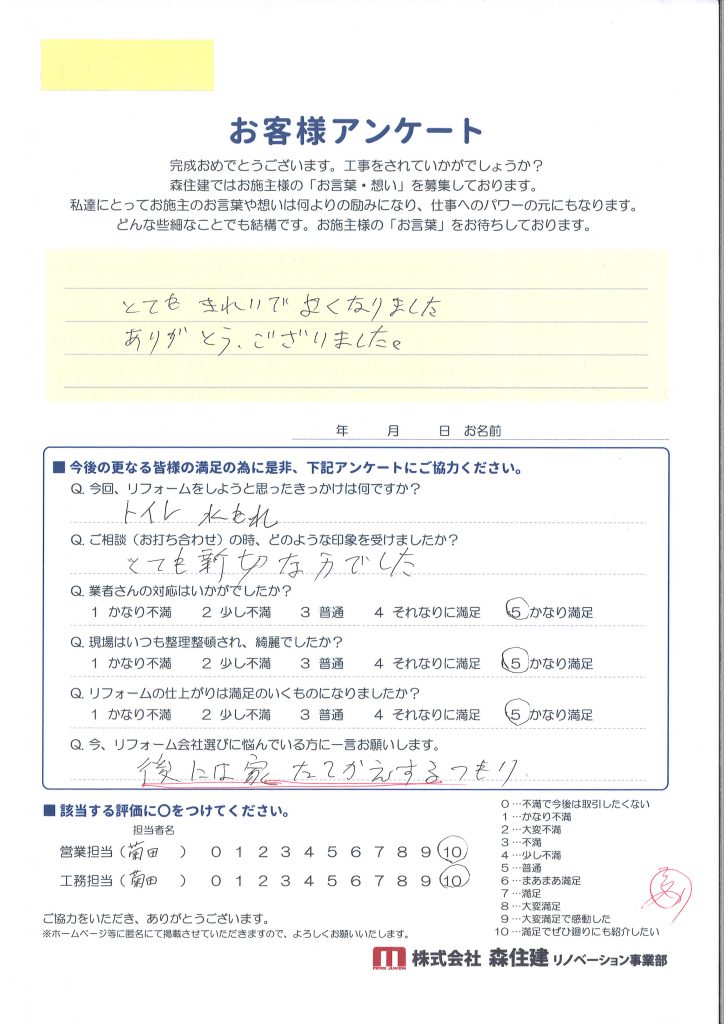 お客様アンケート
完成おめでとうございます。工事をされていかがでしょうか?
森住建ではお施主様の「お言葉・想い」を募集しております。
私達にとってお施主のお言葉や想いは何よりの励みになり、仕事へのパワーの元にもなります。
どんな些細なことでも結構です。お施主様の「お言葉」をお待ちしております。
とても きれいで よくなりました
ありがとう、ございました。
年 月 日 お名前
■ 今後の更なる皆様の満足の為に是非、下記アンケートにご協力ください。
Q. 今回、リフォームをしようと思ったきっかけは何ですか?
トイレ 水もれ
Q. ご相談(お打ち合わせ)の時、どのような印象を受けましたか?
とても 新切な方でした
Q. 業者さんの対応はいかがでしたか?
1 かなり不満 2 少し不満 3 普通 4 それなりに満足 5 かなり満足
Q. 現場はいつも整理整頓され、綺麗でしたか?
1 かなり不満 2 少し不満 3 普通 4 それなりに満足 5 かなり満足
Q. リフォームの仕上がりは満足のいくものになりましたか?
1 かなり不満 2 少し不満 3 普通 4 それなりに満足 5 かなり満足
Q. 今、リフォーム会社選びに悩んでいる方に一言お願いします。
後には家 たてかえするつもり
■ 該当する評価に〇をつけてください。
担当者名
営業担当(菊田 ) 0 1 2 3 4 5 6 7 8 9 10
工務担当(菊田 ) 0 1 2 3 4 5 6 7 8 9 10
0…不満で今後は取引したくない
1…かなり不満
2…大変不満
3…不満
4…少し不満
5…普通
6…まあまあ満足
7…満足
8…大変満足
9…大変満足で感動した
10…満足でぜひ廻りにも紹介したい
ご協力をいただき、ありがとうございます。
※ホームページ等に匿名にて掲載させていただきますので、よろしくお願いいたします。
MORI JUKEN 株式会社 森住建 リノベーション事業部